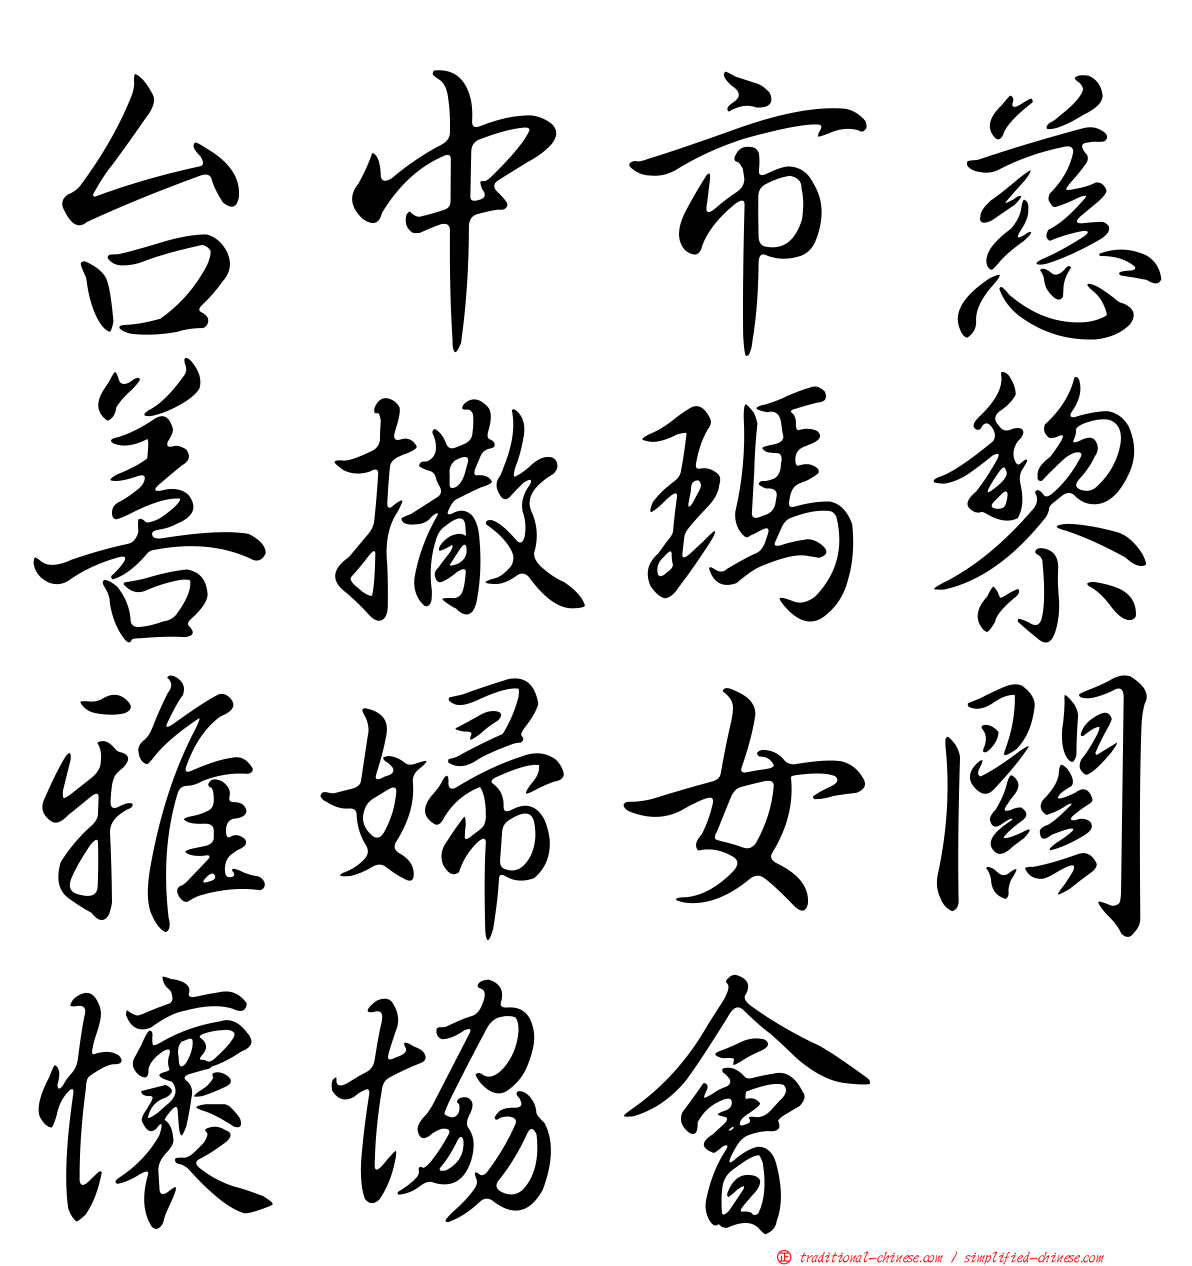 台中市慈
善撒瑪黎
雅婦女關
懷協會
㊣ traditional-chinese.com / simplified-chinese.com